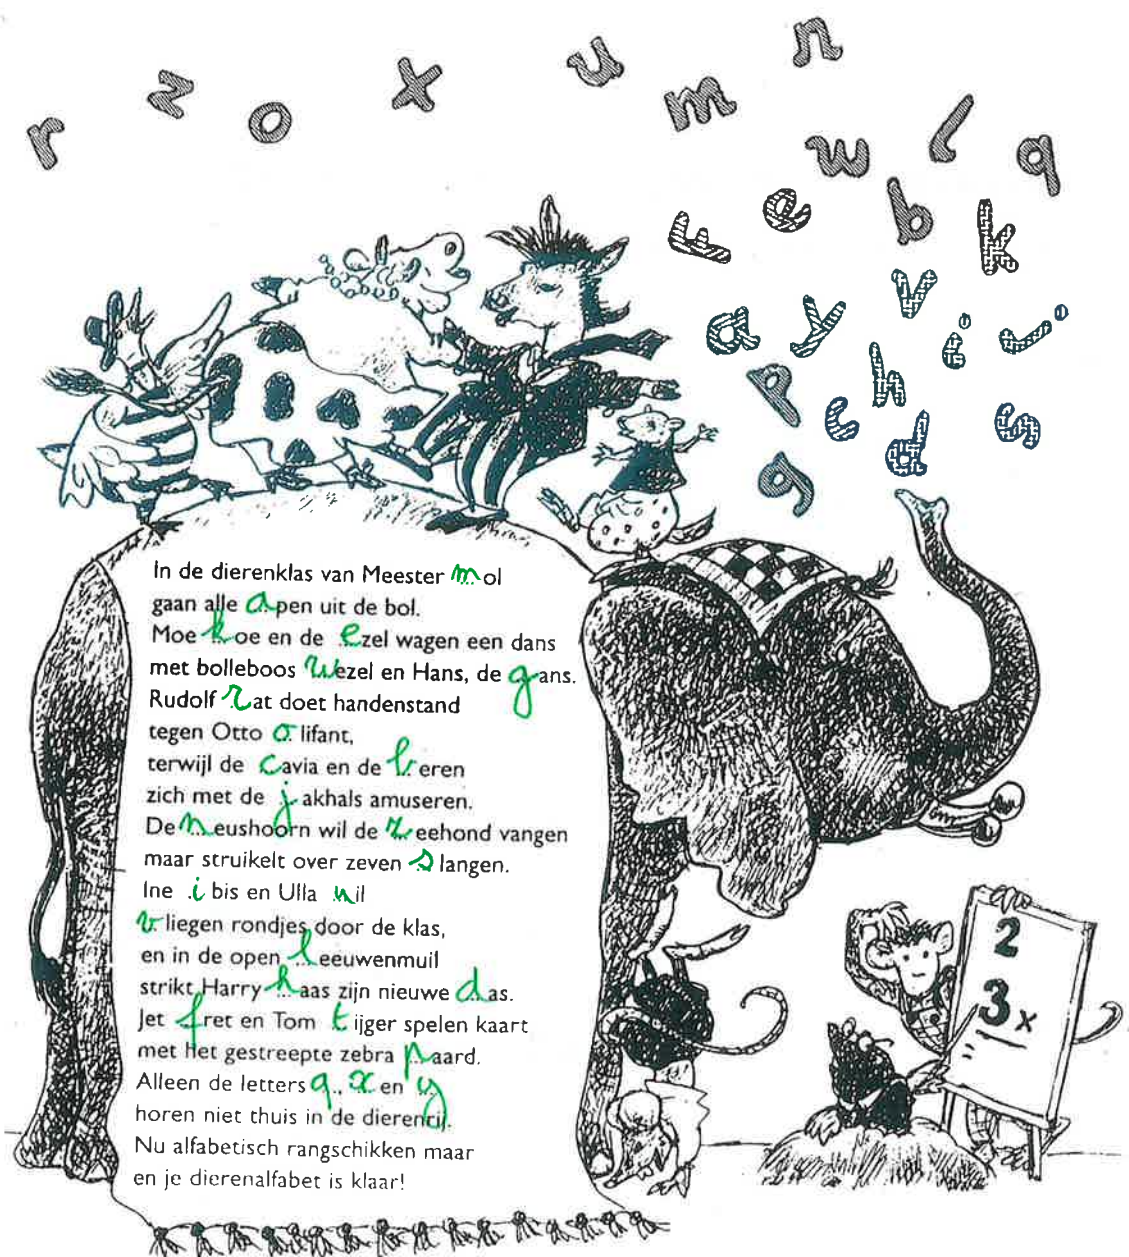 n
u
x
z
m
o
r
w
l
q
e
b
k
F
v
a
y
i
j
h
p
c
d
s
g
In de dierenklas van Meester mol
gaan alle apen uit de bol.
Moe koe en de ezel wagen een dans
met bolleboos wezel en Hans, de gans.
Rudolf rat doet handenstand
tegen Otto olifant,
terwijl de cavia en de beren
zich met de jakhals amuseren.
De neushoorn wil de zeehond vangen
maar struikelt over zeven slangen.
Ine ibis en Ulla uil
vliegen rondjes door de klas,
en in de open leeuwenmuil
strikt Harry haas zijn nieuwe das.
Jet fret en Tom tijger spelen kaart
met het gestreepte zebra paard.
Alleen de letters q, x en y
horen niet thuis in de dierenrij.
Nu alfabetisch rangschikken maar
en je dierenalfabet is klaar!
2
3 x